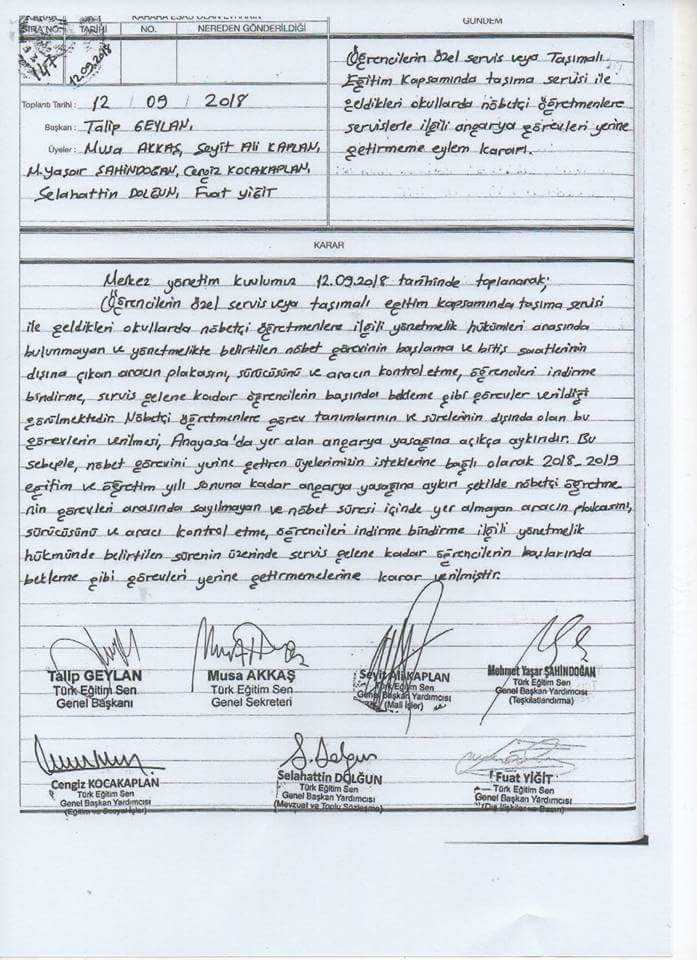 KARARA ESAS OLAN EVRAKIN
SIRA NO. TARİHİ NO. NEREDEN GÖNDERİLDİĞİ
147 12.09.2018
Toplantı Tarihi : 12 / 09 / 2018
Başkan : Talip GEYLAN,
Üyeler : Musa AKKAŞ, Seyit Ali KAPLAN,
M.Yaşar ŞAHİNDOĞAN, Cengiz KOCAKAPLAN,
Selahattin DOLĞUN, Fuat YİĞİT
GÜNDEM
Öğrencilerin özel servis veya Taşımalı
Eğitim kapsamında taşıma servisi ile
geldikleri okullarda nöbetçi öğretmenlere
servislerle ilgili angarya görevleri yerine
getirmeme eylem kararı.
KARAR
Merkez yönetim kurulumuz 12.09.2018 tarihinde toplanarak;
Öğrencilerin özel servis veya taşımalı eğitim kapsamında taşıma servisi
ile geldikleri okullarda nöbetçi öğretmenlere ilgili yönetmelik hükümleri arasında
bulunmayan ve yönetmelikte belirtilen nöbet görevinin başlama ve bitiş saatlerinin
dışına çıkan aracın plakasını, sürücüsünü ve aracın kontrol etme, öğrencileri indirme
bindirme, servis gelene kadar öğrencilerin başında bekleme gibi görevler verildiği
görülmektedir. Nöbetçi öğretmenlere görev tanımlarının ve sürelerinin dışında olan bu
görevlerin verilmesi, Anayasa'da yer alan angarya yasağına açıkça aykırıdır. Bu
sebeple, nöbet görevini yerine getiren üyelerimizin isteklerine bağlı olarak 2018-2019
eğitim ve öğretim yılı sonuna kadar angarya yasağına aykırı şekilde nöbetçi öğretme-
nin görevleri arasında sayılmayan ve nöbet süresi içinde yer almayan aracın plakasını,
sürücüsünü ve aracı kontrol etme, öğrencileri indirme bindirme ilgili yönetmelik
hükmünde belirtilen sürenin üzerinde servis gelene kadar öğrencilerin başlarında
bekleme gibi görevleri yerine getirmemelerine karar verilmiştir.
Talip GEYLAN
Türk Eğitim Sen
Genel Başkanı
Musa AKKAŞ
Türk Eğitim Sen
Genel Sekreteri
Seyit Ali KAPLAN
Türk Eğitim Sen
Genel Başkan Yardımcısı
(Mali İşler)
Mehmet Yaşar ŞAHİNDOĞAN
Türk Eğitim Sen
Genel Başkan Yardımcısı
(Teşkilatlandırma)
Cengiz KOCAKAPLAN
Türk Eğitim Sen
Genel Başkan Yardımcısı
(Eğitim ve Sosyal İşler)
S. Dolgun
Selahattin DOLĞUN
Türk Eğitim Sen
Genel Başkan Yardımcısı
(Mevzuat ve Toplu Sözleşme)
Fuat YİĞİT
Türk Eğitim Sen
Genel Başkan Yardımcısı
(Dış İlişkiler ve Basın)